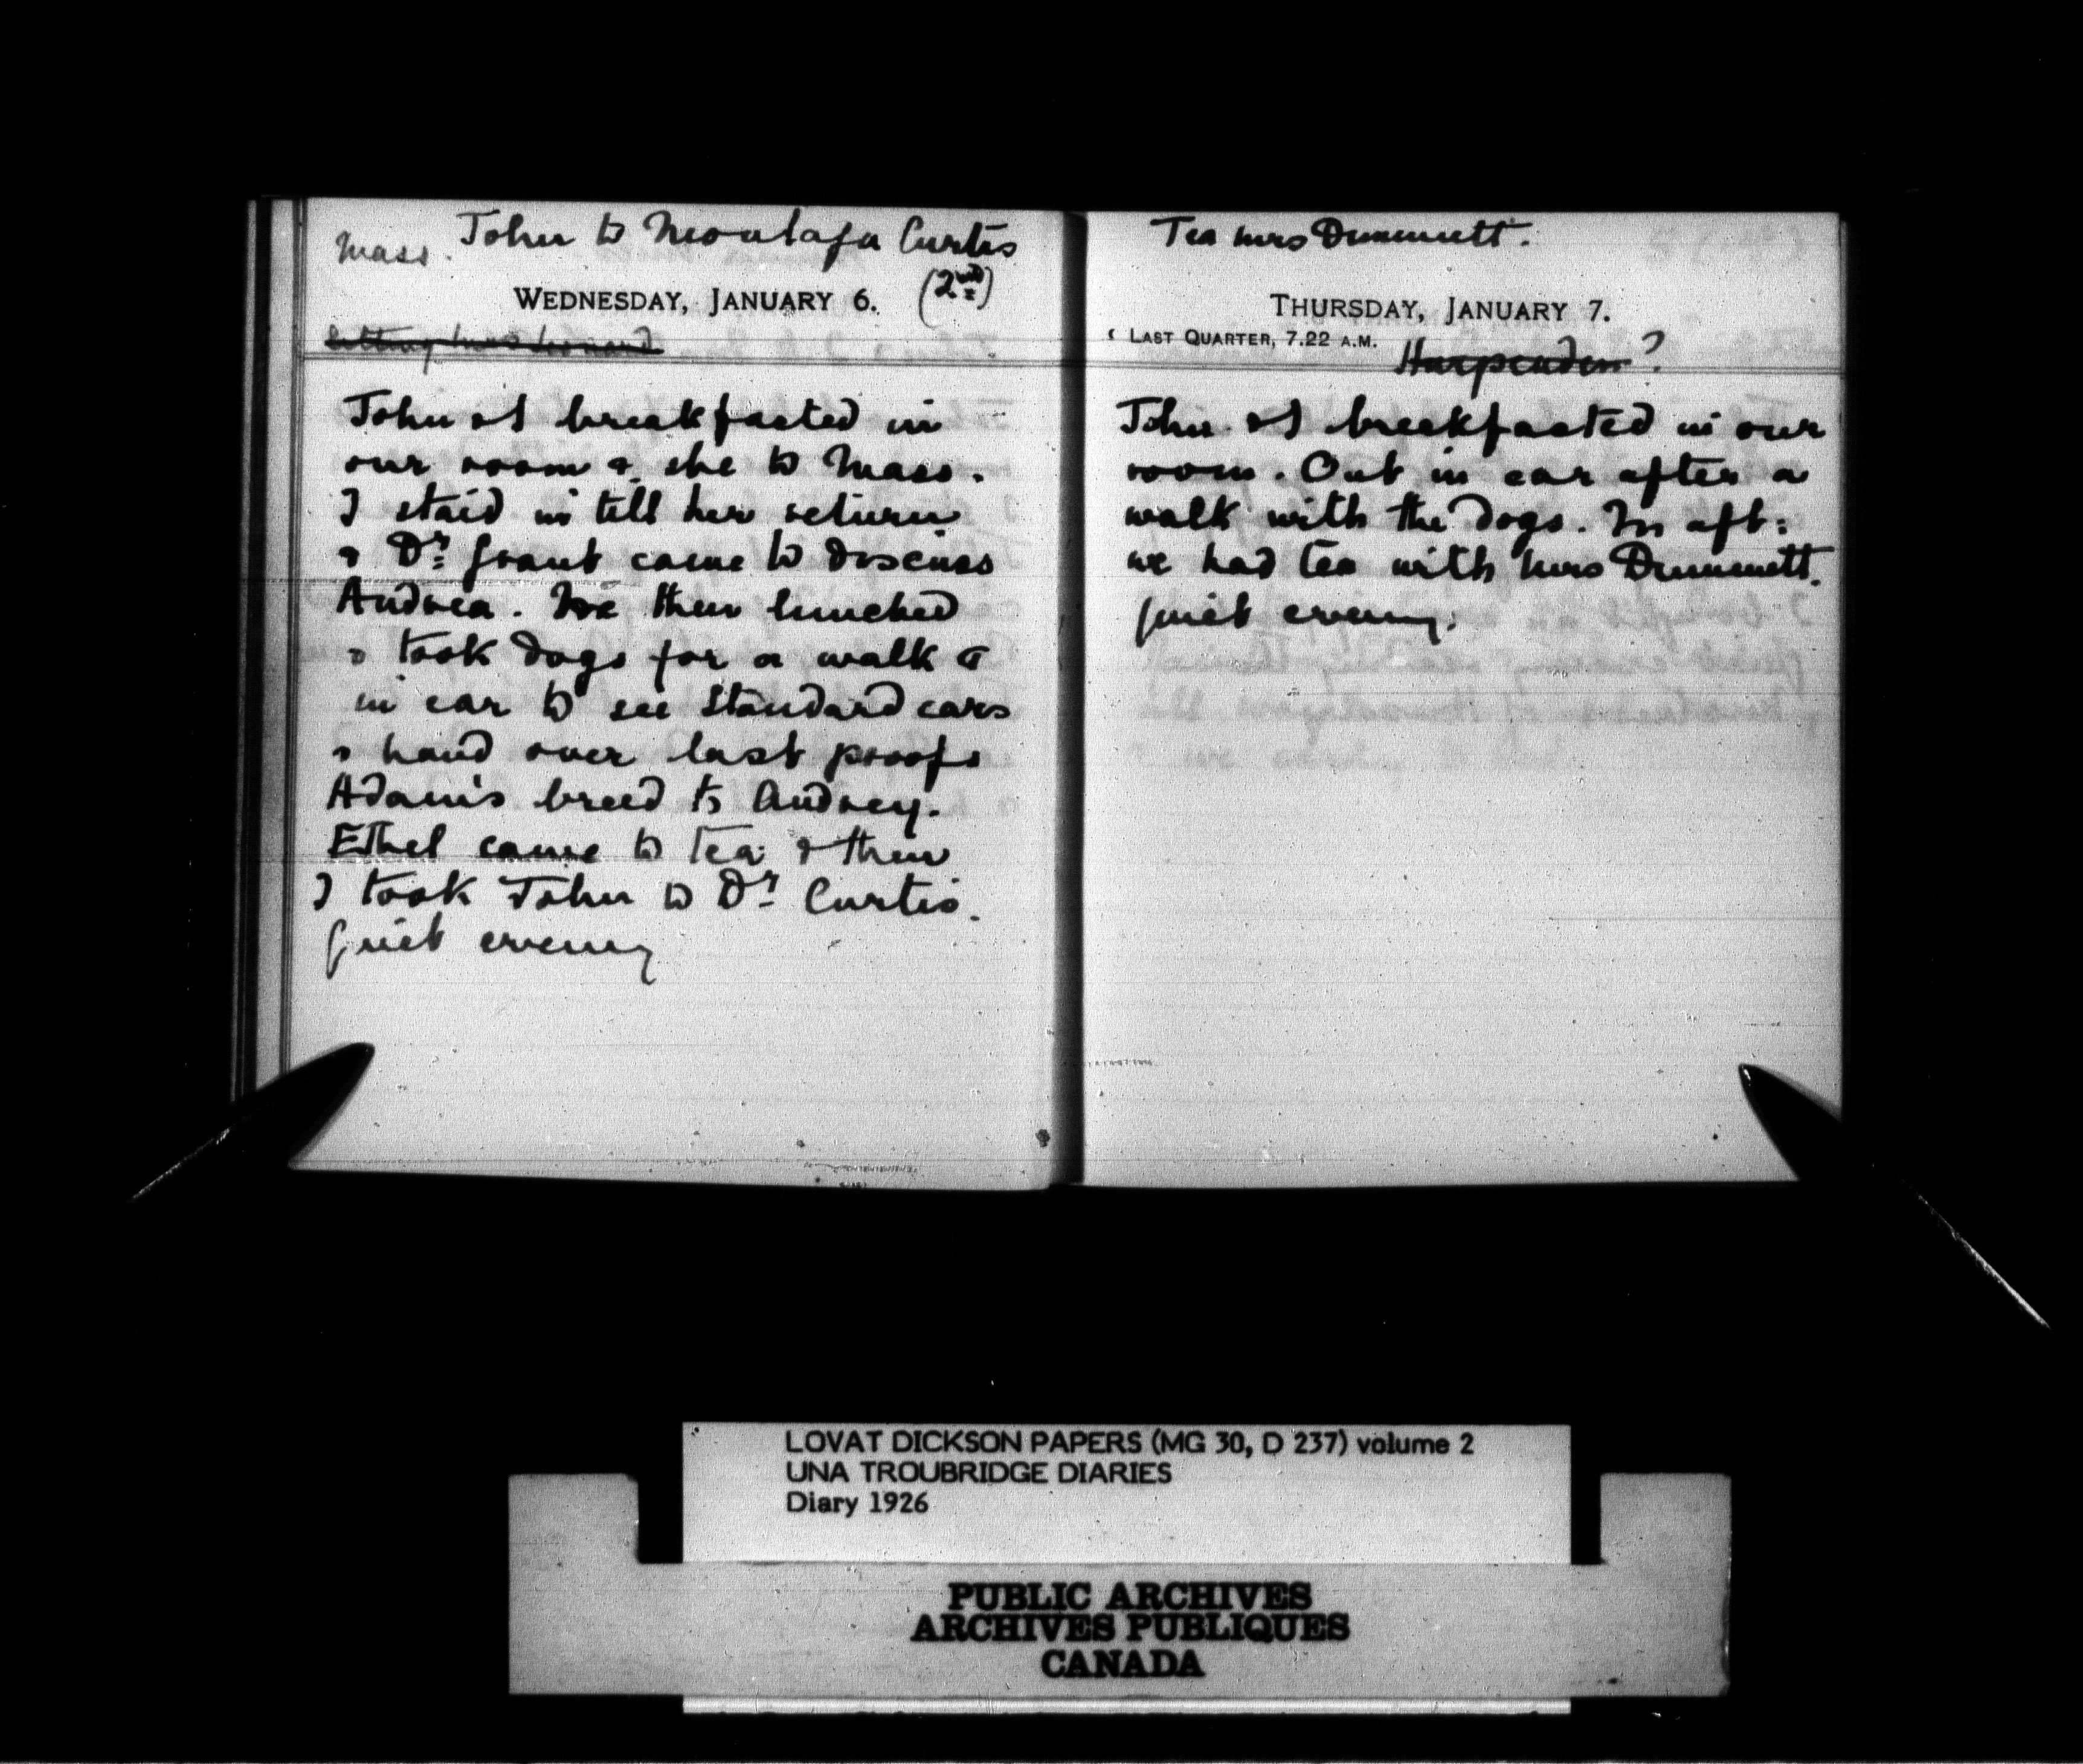 Mass. John to Moutafa Curtis
(2nd)
WEDNESDAY, JANUARY 6.
John & I breakfasted in
our room & she to Mass.
I staid in till her return
& Dr: Grant came to discuss
Andrea. We then lunched
& took dogs for a walk &
in car to see Standard cars
& hand over last proofs
Adam's breed to Audrey.
Ethel came to tea & then
I took John to Dr Curtis.
Quiet evening
Tea Mrs Dummett.
THURSDAY, JANUARY 7.
☾ LAST QUARTER, 7.22 A.M.
Harpenden?
John & I breakfasted in our
room. Out in car after a
walk with the dogs. In aft:
we had tea with Mrs Dummett.
Quiet evening.
LOVAT DICKSON PAPERS (MG 30, D 237) volume 2
UNA TROUBRIDGE DIARIES
Diary 1926
PUBLIC ARCHIVES
ARCHIVES PUBLIQUES
CANADA